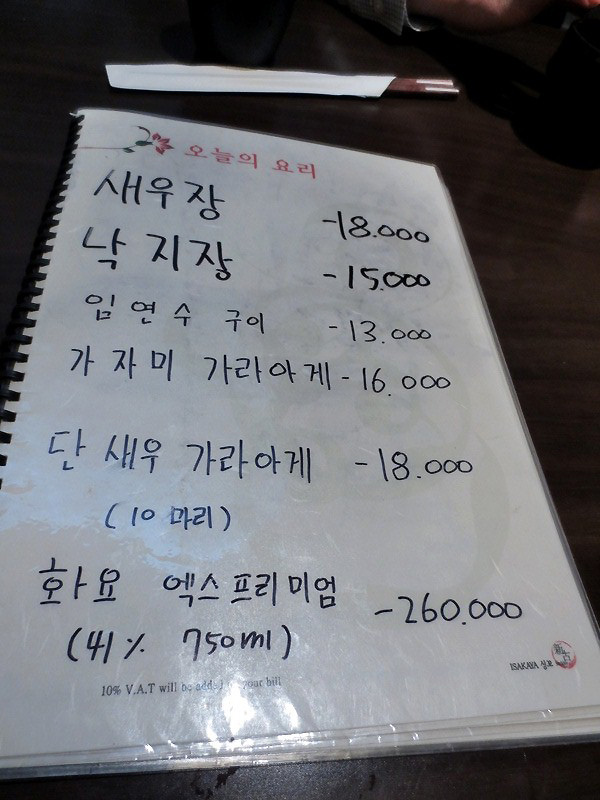 오늘의 요리
새우장 -18.000
낙지장 -15.000
임연수 구이 -13.000
가자미 가라아게 -16.000
단새우 가라아게 -18.000
(10 마리)
화요 엑스프리미엄 -260.000
(41% 750ml)
10% V.A.T will be added to your bill
ISAKAYA